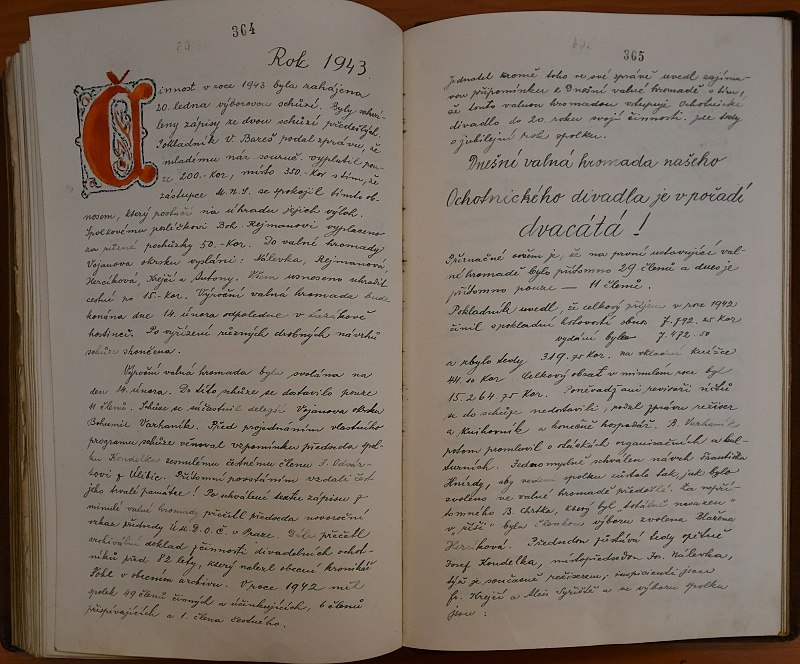 364
Rok 1943.
Činnost v roce 1943 byla zahájena
20. ledna výborovou schůzí. Byly schvá-
leny zápisy ze dvou schůzí předešlých.
Pokladník V. Bareš podal zprávu, že
mládemu nár. souruč. vyplatil pou-
ze 200.-Kor, místo 350.-Kor s tím, že
zástupce M.N.S. se spokojil tímto ob-
nosem, který postačí na úhradu jejich výloh.
Spolkovému poslíčkovi Boh. Rejmanovi vyplaceno
za různé pochůzky 50.-Kor. Do valné hromady
Vojanova okrsku vysláni: Nálevka, Rejmanová,
Hercíková, Krejčí a Šutony. Všem usneseno uhradit
cestné po 15.-Kor. Výroční valná hromada bude
konána dne 14. února odpoledne v
hostinci. Po vyřízení různých drobných návrhů
schůze skončena.
Výroční valná hromada byla svolána na
den 14. února. Do této schůze se dostavilo pouze
11 členů. Schůze se súčastnil delegát Vojanova okrsku
Bohumil Varhaník. Před projednáním vlastního
programu schůze věnoval vzpomínku předseda spol-
ku Koudelka zesnulému čestnému členu
z Úlibic. Přítomní povstáním vzdali čest
jeho trvalé památce! Po schválení textu zápisu z
minulé valné hromady přečtl předseda novoroční
vzkaz předsedy Ú.M.D.O.Č. v Praze. Dále přečtl
archivální doklad činnosti divadelních ochot-
níků před 82 lety, který nalezl obecní kronikář
v obecním archivu. V roce 1942 měl
spolek 49 členů činných a účinkujících, 6 členů
přispívajících a 1. člena čestného.
365
Jednatel kromě toho ve své zprávě uvedl zajíma-
vou připomínku k Dnešní valné hromadě s tím,
že touto valnou hromadou vstupuje Ochotnické
divadlo do 20 roku svojí činnosti. Jde tedy
o jubilejní rok spolku.
Dnešní valná hromada našeho
Ochotnického divadla je v pořadí
dvacátá!
Příznačné ovšem je, že na první ustavující val-
né hromadě bylo přítomno 29 členů a dnes je
přítomno pouze — 11 členů.
Pokladník uvedl, že celkový příjem v roce 1942
činil s pokladní hotovostí obnos 7.792.25 Kor
vydání bylo 7.472.50
a zbylo tedy 319.75 Kor. na vkladní knížce
44.50 Kor Celkový obrat v minulém roce byl
15.264.75 Kor. Poněvadž ani revisoři účtů
se do schůze nedostavili, podal zprávu režiser
a knihovník a konečně hospodář. B. Varhaník
potom promluvil o otázkách organisačních a kul-
turních. Jednomyslně schválen návrh Františka
Hnízdy, aby vedení spolku zůstalo tak, jak bylo
zvoleno ve valné hromadě předešlé. Za nepří-
tomného B. Chrtka, který byl totálně nasazen
v „říši" byla členkou výboru zvolena Blažena
Hercíková. Předsedou zůstává tedy opětně
Josef Koudelka, místopředsedou Jos. Nálevka,
týž je současně režiserem; inspicienti jsou
fr. Krejčí a Alois Syřiště a ve výboru spolku
jsou: